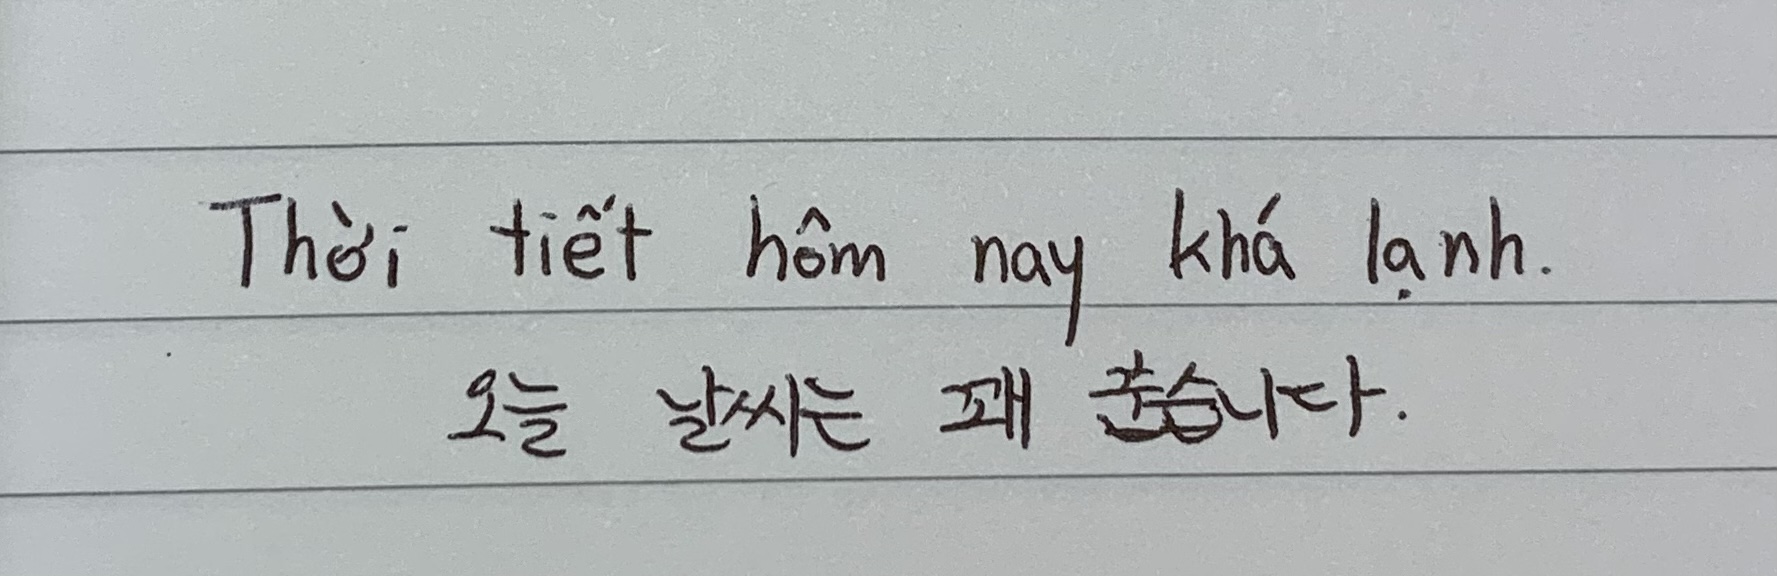 Thời tiết hôm nay khá lạnh.
오늘 날씨는 꽤 춥습니다.